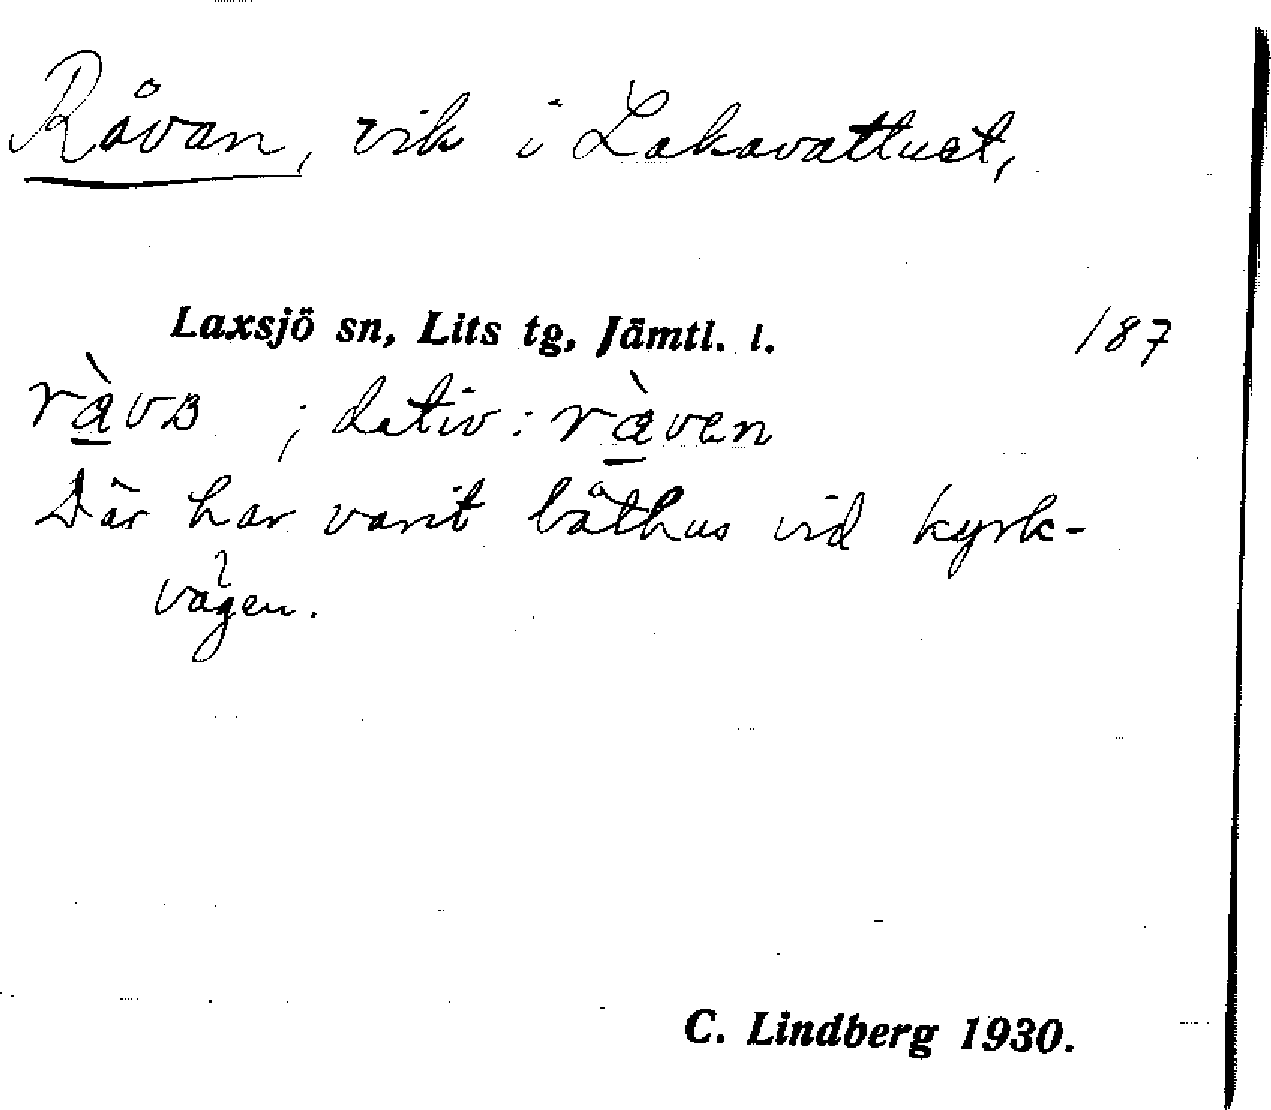 Råvan, vik i Lakavattnet,
Laxsjö sn, Lits tg, Jämtl. l. 187
ràvʙ ; dativ: ràven
Där har varit båthus vid kyrk-
vägen.
C. Lindberg 1930.